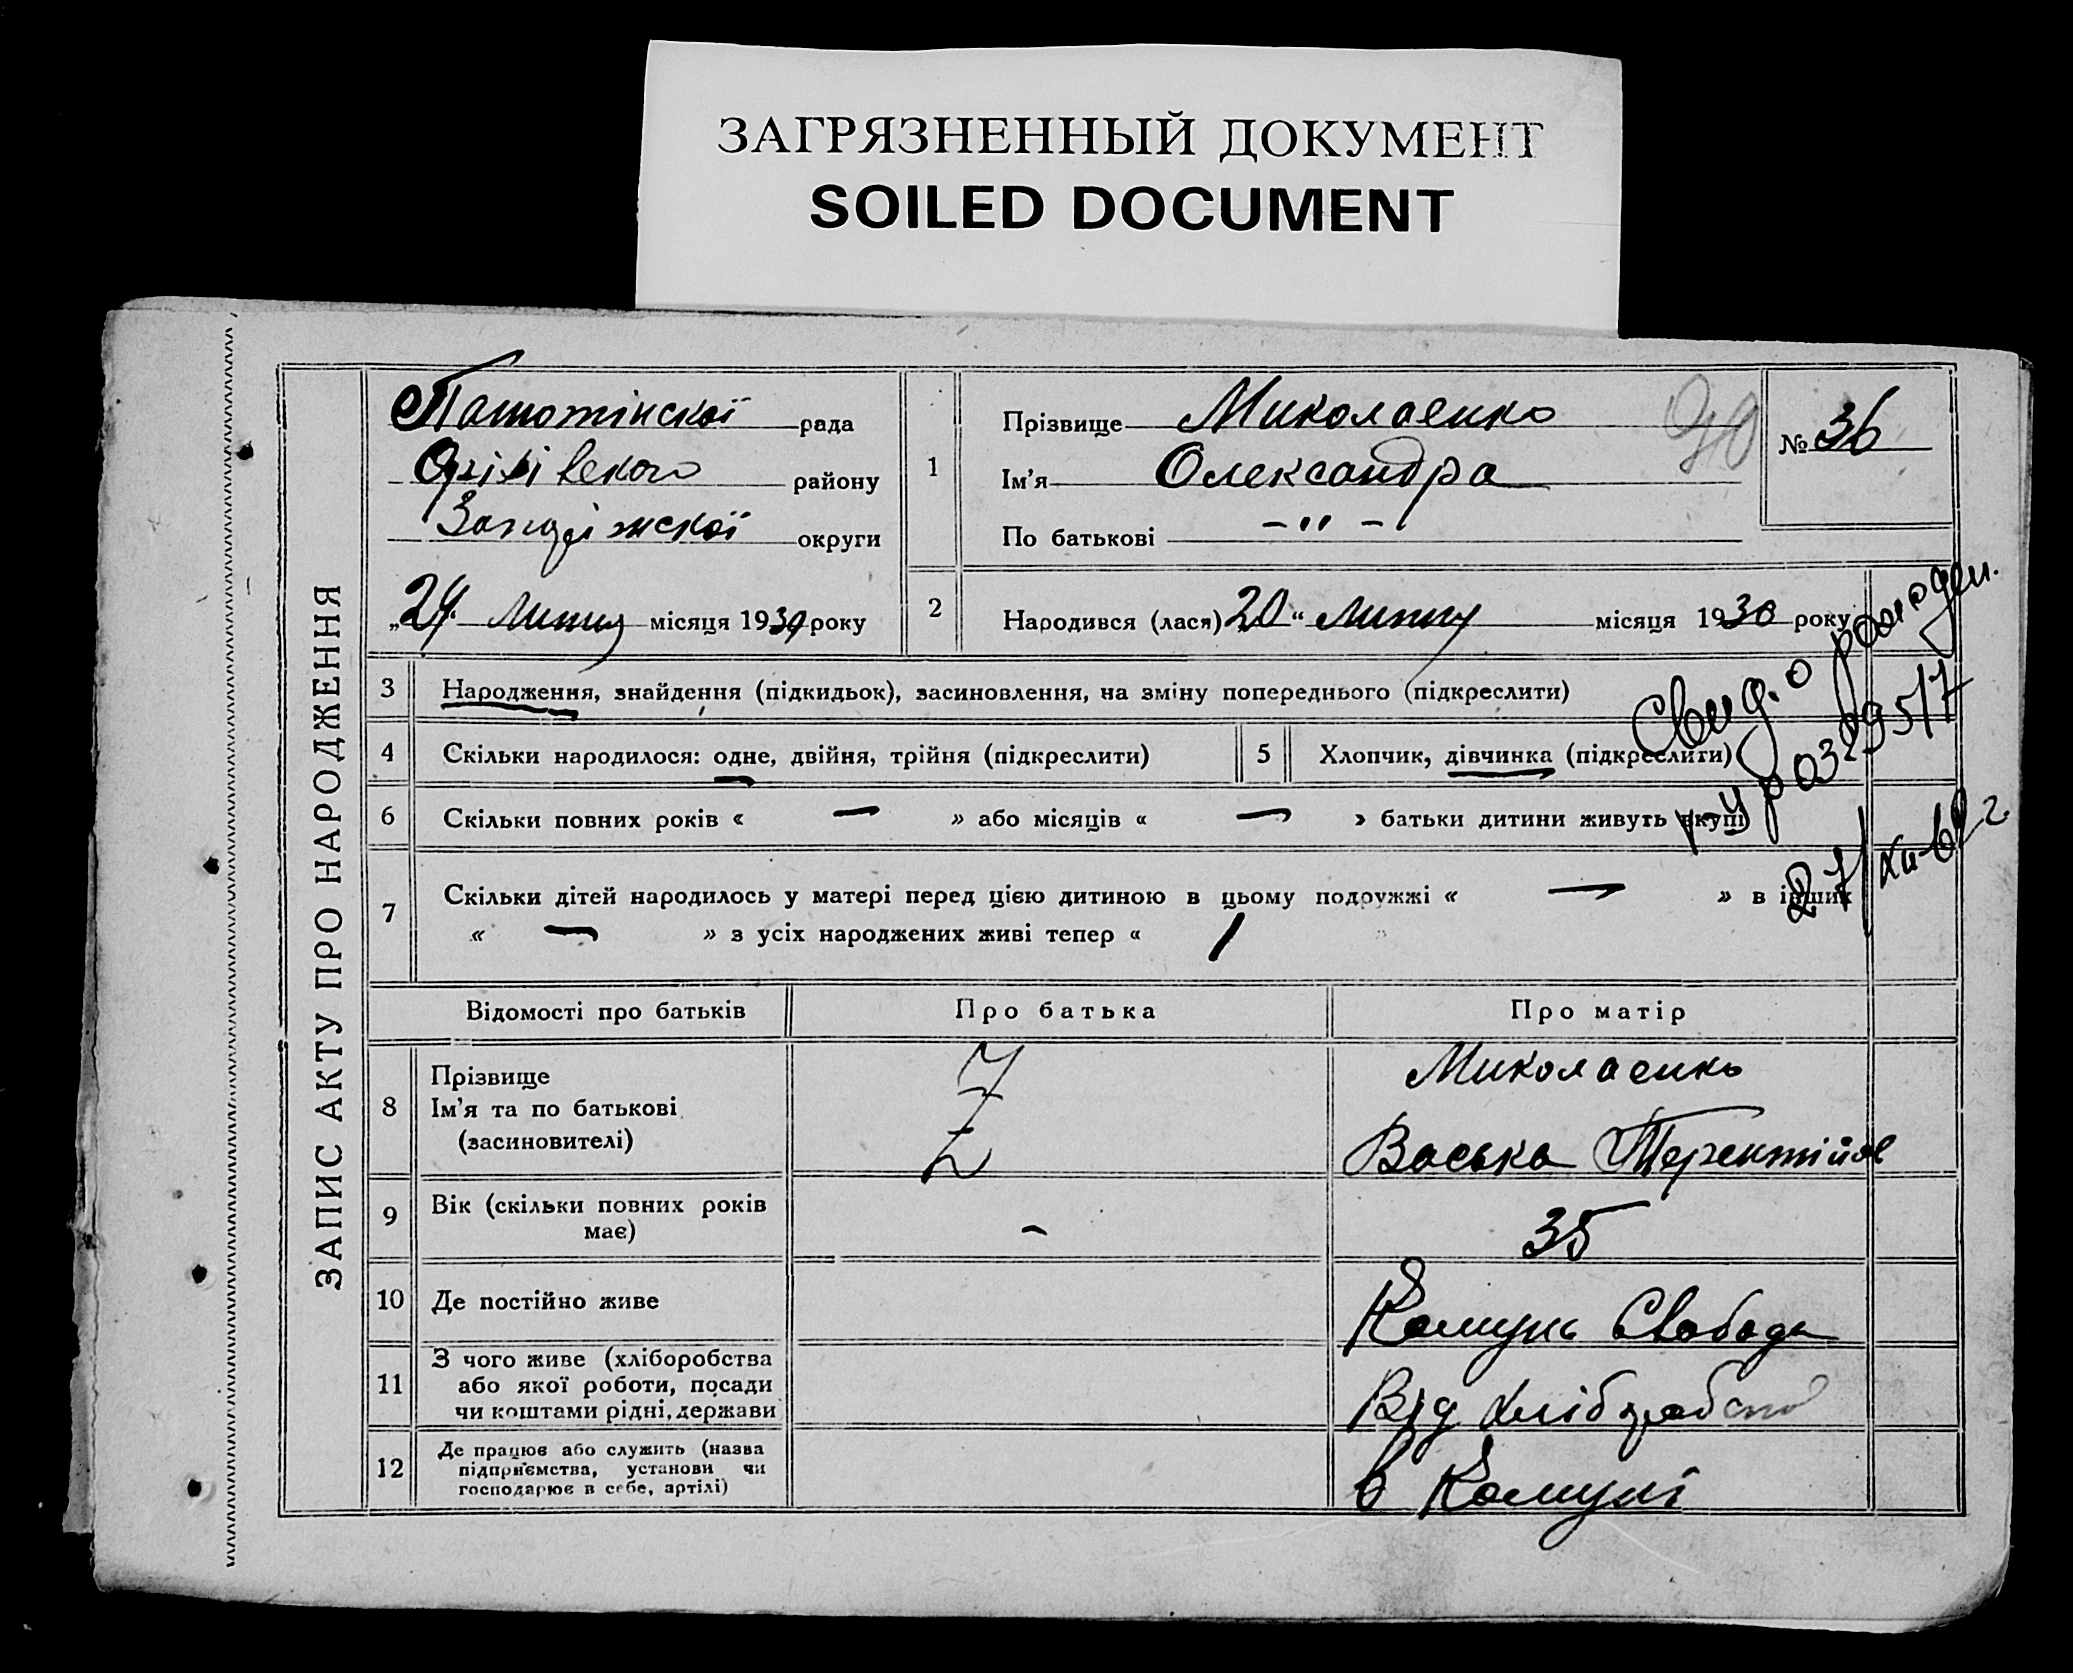 ЗАГРЯЗНЕННЫЙ ДОКУМЕНТ
SOILED DOCUMENT
ЗАПИС АКТУ ПРО НАРОДЖЕННЯ
рада
району
округи
„24“ місяця 1930 року
1
Прізвище Миколаенко
Ім'я Олександра
По батькові -"-
№ 36
2
Народився (лася) 20 “ місяця 1930 року
3 Народження, знайдення (підкидьок), засиновлення, на зміну попереднього (підкреслити)
4 Скільки народилося: одне, двійня, трійня (підкреслити)
5 Хлопчик, дівчинка (підкреслити)
6 Скільки повних років « — » або місяців « — » батьки дитини живуть вкупі
7 Скільки дітей народилось у матері перед цією дитиною в цьому подружжі « — » в інших
« — » з усіх народжених живі тепер « 1 »
Свид. о рожден.
27/XII-
Відомості про батьків
Про батька
Про матір
8 Прізвище
Ім'я та по батькові
(засиновителі)
Z
Z
Миколаенко
Васька
9 Вік (скільки повних років
має)
-
35
10 Де постійно живе
Свобода
11 З чого живе (хліборобства
або якої роботи, посади
чи коштами рідні, держави
Від
12 Де працює або служить (назва
підприємства, установи чи
господарює в себе, артілі)
в Комуні